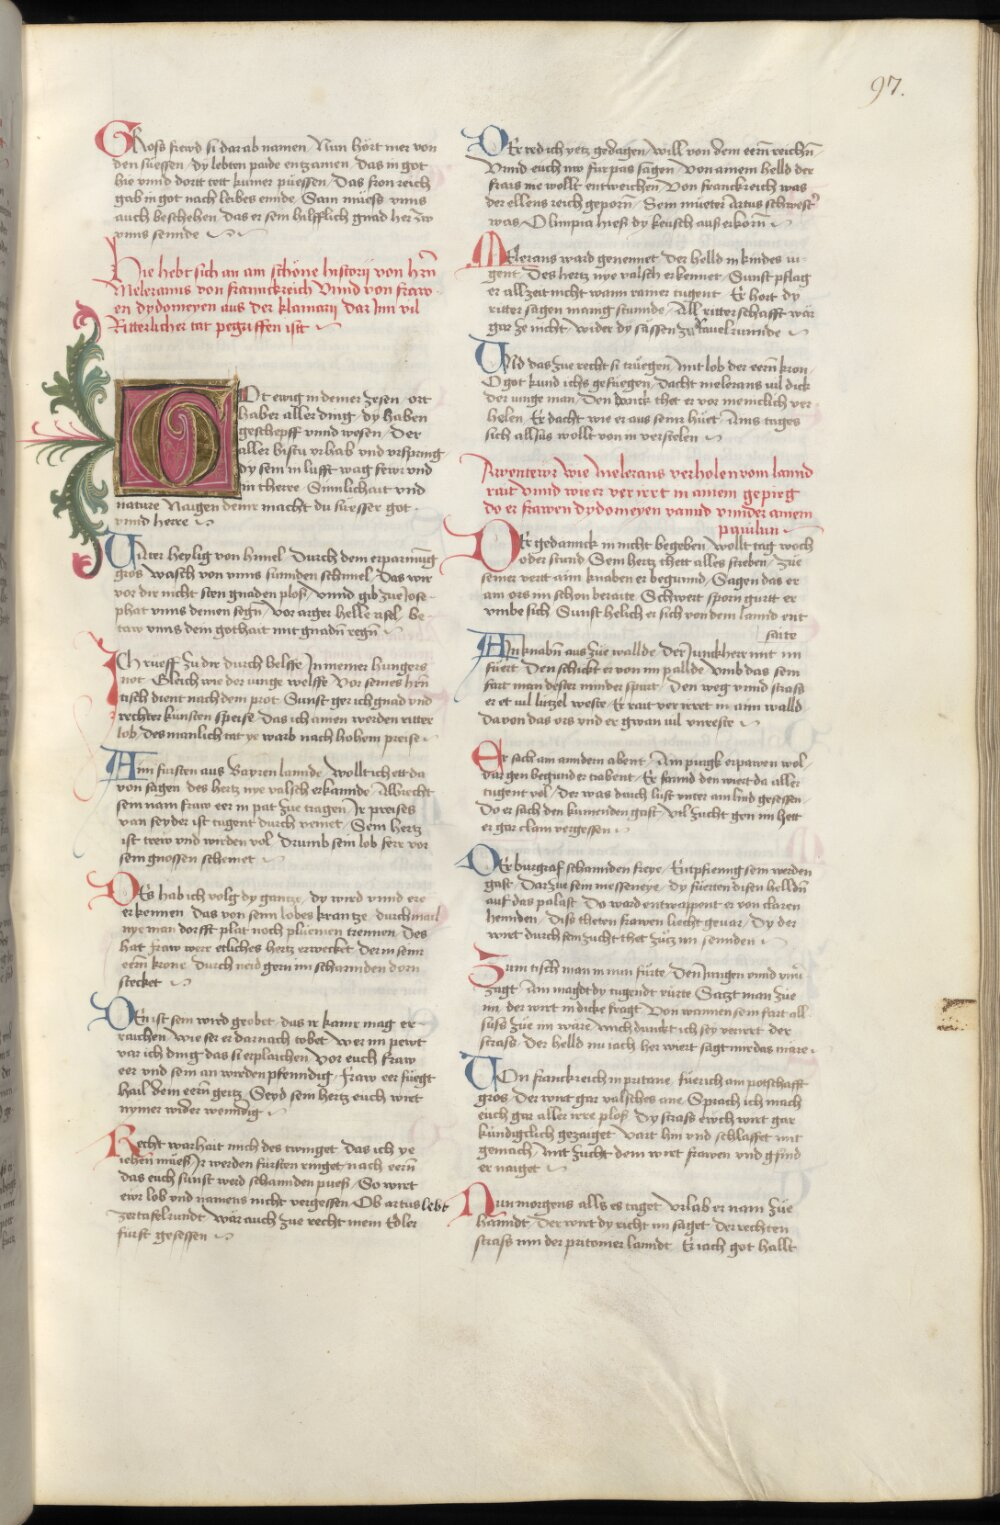 97.
GRoss frewd si dar ab namen / Nun hört mer von
den süessen / dy lebten paide entzamen / Das in got
hie vnnd dortt tett kumer püessen / Das fron reich
gab in got nach leibes ennde / Sam müess vnns
auch beschehen das er sein hilfflich gnad her zw
vnns sennde
Hie hebt sich an am schöne history von hrñ
Meleranns von franckreich Vnnd von fraw
en dydomeyen aus der klamany dar Jnn vil
Ritterlicher tat pegriffen ist
GOt ewig in deiner zesen / ort
haber aller ding / dy haben
geschepff vnnd wesen / Der
aller bistu vrhab vnd vrspring
dy sein in lufft wag fewr vnd
in therre / Sinnlichait vnd
nature Naigen deinr macht du süesser got
vnnd herre
VAtter heylig von himel / Durch dein erparmũg
gros wasch von vnns sunnden schimel / Das wir
vor dir nicht sten gnaden ploss / Vnnd gib zue Jose
phat vnns deinen segñ / Vor arger helle asel / be
taw vnns dein gothait mit gnadñ regñ
ICh rüeff zu dir durch helffe Jn meiner hungers
not Gleich wie der iunge welffe Vor seines hrñ
tisch dient nach dem prot Sunst ger ich gnad vnd
rechter künsten speise / Das ich amen werden ritter
lob / Des manlich tat ye warb nach hohem preise
AIm fürsten aus Bayren lannde / Wollt ich ett da
von sagen des hertz nye valsch erkannde / Albrecht
sein nam fraw eer in pat zue tragen / Jr preises
van seyder ist tugent durch veinet / Sein hertz
ist trew vnd wirden vol / Drumb sein lob ferr vor
sein gnossen scheinet
DEs hab ich volg dy gantze / dy wird vnnd ere
erkennen das von seim lobes krantze / durch mail
nye man dorfft plat noch plüemen trennen / Des
hat fraw were etliches hertz erwecket der in seinr
eerñ krone durch neid gern im schannden dorn
stecket
DEn ist sein wird geobet / das ir kainr mag er
raichen / Wie ser er darnach tobet / Wer im pewt
var ich ding das si erplaichen / Vor euch fraw
eer vnd sein an wirden pfenndig / Fraw eer füegt
hail dem eerñ geitz / Seyd sein hertz euch wirt
nymer wider wenndig
Recht warhait mich des twinget das ich ye
iehen müess / Jr werden fürsten ringet / nach eerñ
das euch sunst werd schannden puess / So wirt
ewr lob vnd namens nicht vergessen / Ob artus lebt
zer tafelrundt / Wär auch zue recht mein Edler
fürst gesessen
DEr red ich yetz gedagen / will von dem eerñ reichñ
Vnnd euch nw für pas sagen / Von ainem helld der
frais nie wollt entweichen / Von franckreich was
der ellens reich geporñ / Sein mueter Artus schwest'
was / Olimpia hiess dy keusch auss erkorñ
Melerans ward genennet / Der helld in kindes iu
gent / Des hertz nye valsch erkennet / Sunst pflag
er allzeit nicht wann rainer tugent / Er hort dy
ritter sagen manig stunnde / All ritterschafft wär
gar ze nicht / wider dy sässen zu tauelrunnde
Vnd das zue recht si trüegen / mit lob der eerñ kron
O got kund ichs gefüegen / Dacht melerans vil dick
der iunge man / Den danck thet er vor meniclich ver
helen / Er dacht wie er aus seinr huet / Ains tages
sich allsus wollt von in verstelen
Awentewr wie Melerans verholen vom lannd
rait vnnd wie er verirrt in ainem gepirg
do er frawen dydomeyen vannd vnnder ainem
pauilun
Der gedannck in nicht begeben / wollt tag noch
oder stund / Sein hertz thett alles streben / zue
seiner vertt aim knaben er begunnd / Sagen das er
am ors im schon beraite / Schwert sporn gurtt er
vmbe sich / Sunst helich er sich von dem lannd ent
saite
Ain knabñ aus zue wallde / Der Junckherr mit im
füert / Den schickt er von im pallde / Vmb das sein
fart man dester minder spurt / Den weg vnnd strass
er et vil lützel weste / Er rait verirret in ainn walld
Da von das ors vnd er gwan vil vnreste
Er sach am anndern abent / Ain purgk erpawen wol
dar gen begund er trabent / Er fannd den wiert da aller
tugent vol / Der was durch lust vnter ain lind gesessen
Do er sach den kumenden gast / Vil zucht gen im hett
er gar clain vergessen
Der burgraf schannden freye / Entpfienng sein werden
gast / Dar zue sein messeneye / dy füerten disen helldñ
auf das palast / Do ward entwappent er von claren
hennden / Diss theten frawen liecht gevar / Dy der
wirt durch sein zucht thet zue im sennden
Zum tisch man in nun fürte / Den Jungen vnnd vnu'
zagt / Ain magdt dy tugendt rürte / Satzt man zue
im / der wirt in dicke fragt / Von wannen sein fart all
suss zue im ware / Mich dunckt ich sey verirrt der
strass / Der helld nu iach her wiert sagt mir das märe
Von franckreich in pritane / fuer ich am potschafft
gros / Der wirt gar valsches ane / Sprach ich mach
euch gar aller irre plos / Dy strass ewch wirt gar
kündigclich gezaiget / Vart hin vnd schlaffet mit
gemach / Mit zucht dem wirt frawen vnd gsind
er naiget
Nun morgens alls es taget / Vrlab er nam zue
hanndt / Der wirt dy richt im saget / Der rechten
strass im der pritonier lanndt / Er iach got hallt